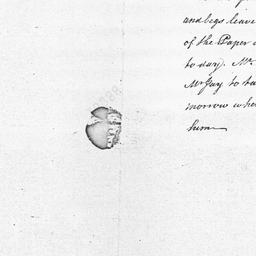 and begs leave
of the Paper
to day). Mr.
Mr Jay to
morrow
him